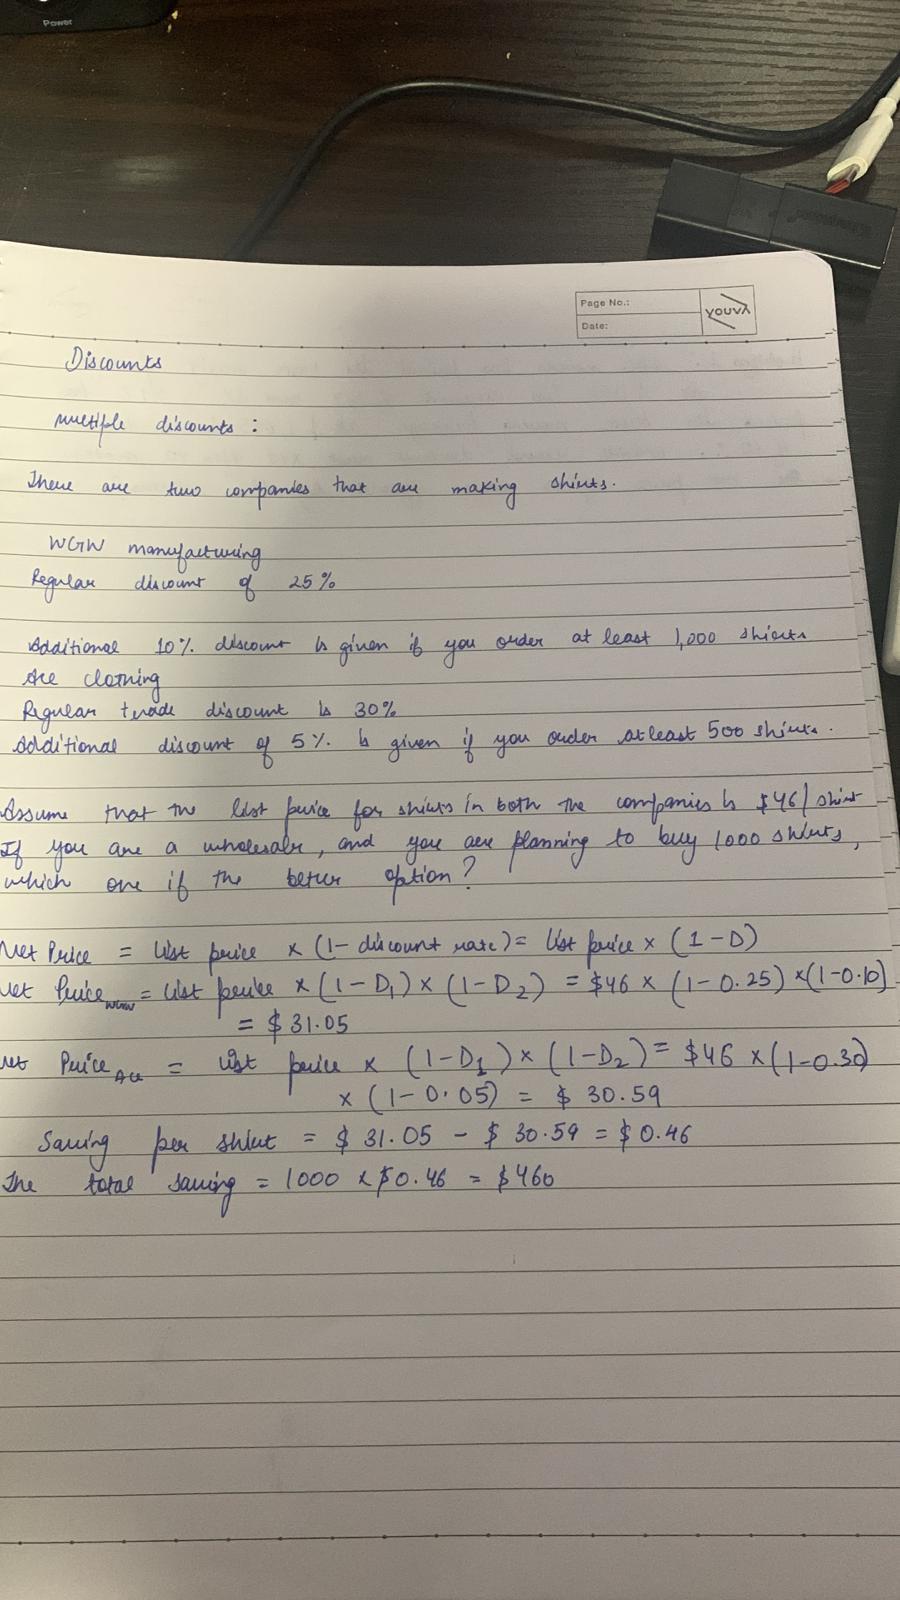 Power
Page No.:
Date:
YOUVA
Discounts
Multiple discounts :
There are two companies that are making shirts.
WGW manufacturing
Regular discount of 25%
Additional 10% discount is given if you order at least 1,000 shirts
Ace clothing
Regular trade discount is 30%
Additional discount of 5% is given if you order atleast 500 shirts.
Assume that the list price for shirts in both the companies is $46/shirt
If you are a wholesaler, and you are planning to buy 1000 shirts,
which one if the better option?
Net Price = List price × (1- discount rate) = List price × (1-D)
Net Price WGW = List price × (1-D1) × (1-D2) = $46 × (1-0.25) × (1-0.10)
= $31.05
Net Price Ace = List price × (1-D1) × (1-D2) = $46 × (1-0.30)
× (1-0.05) = $ 30.59
Saving per shirt = $ 31.05 - $ 30.59 = $0.46
The total saving = 1000 × $0.46 = $460